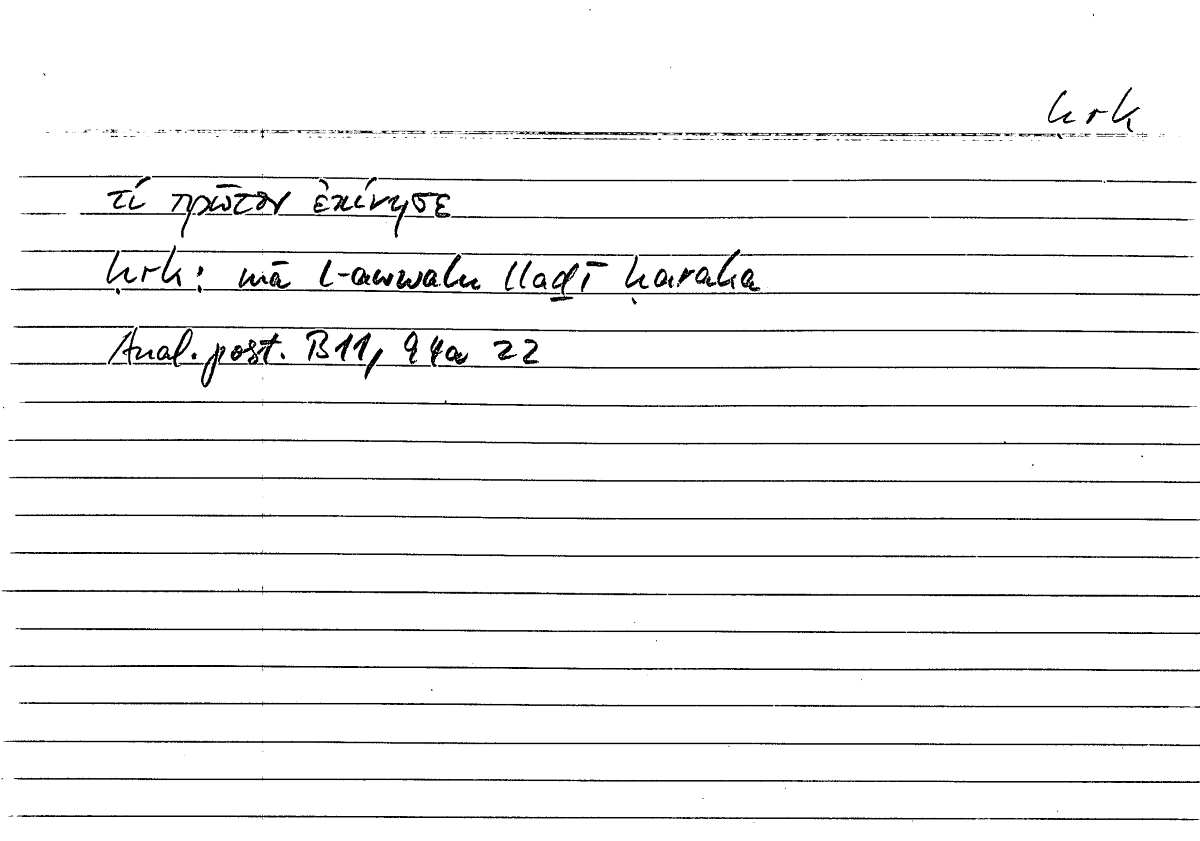 ḥrk
τί πρῶτον ἐκίνησε
ḥrk: mā l-awwalu llaḏī ḥaraka
Anal. post. B11, 94a 22